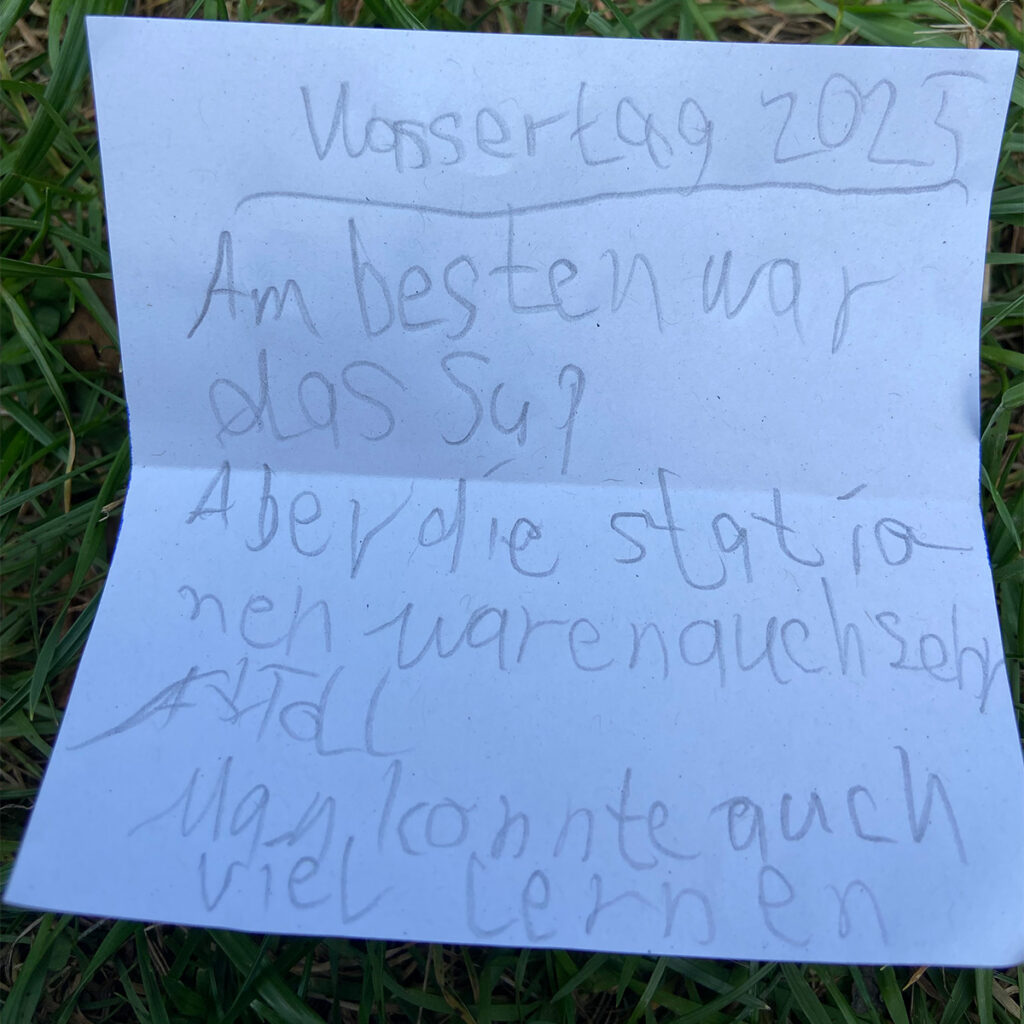 Wassertag 2025
Am besten war
das Sup
Aber die statio
nen waren auch sehr
toll
Man konnte auch
viel lernen